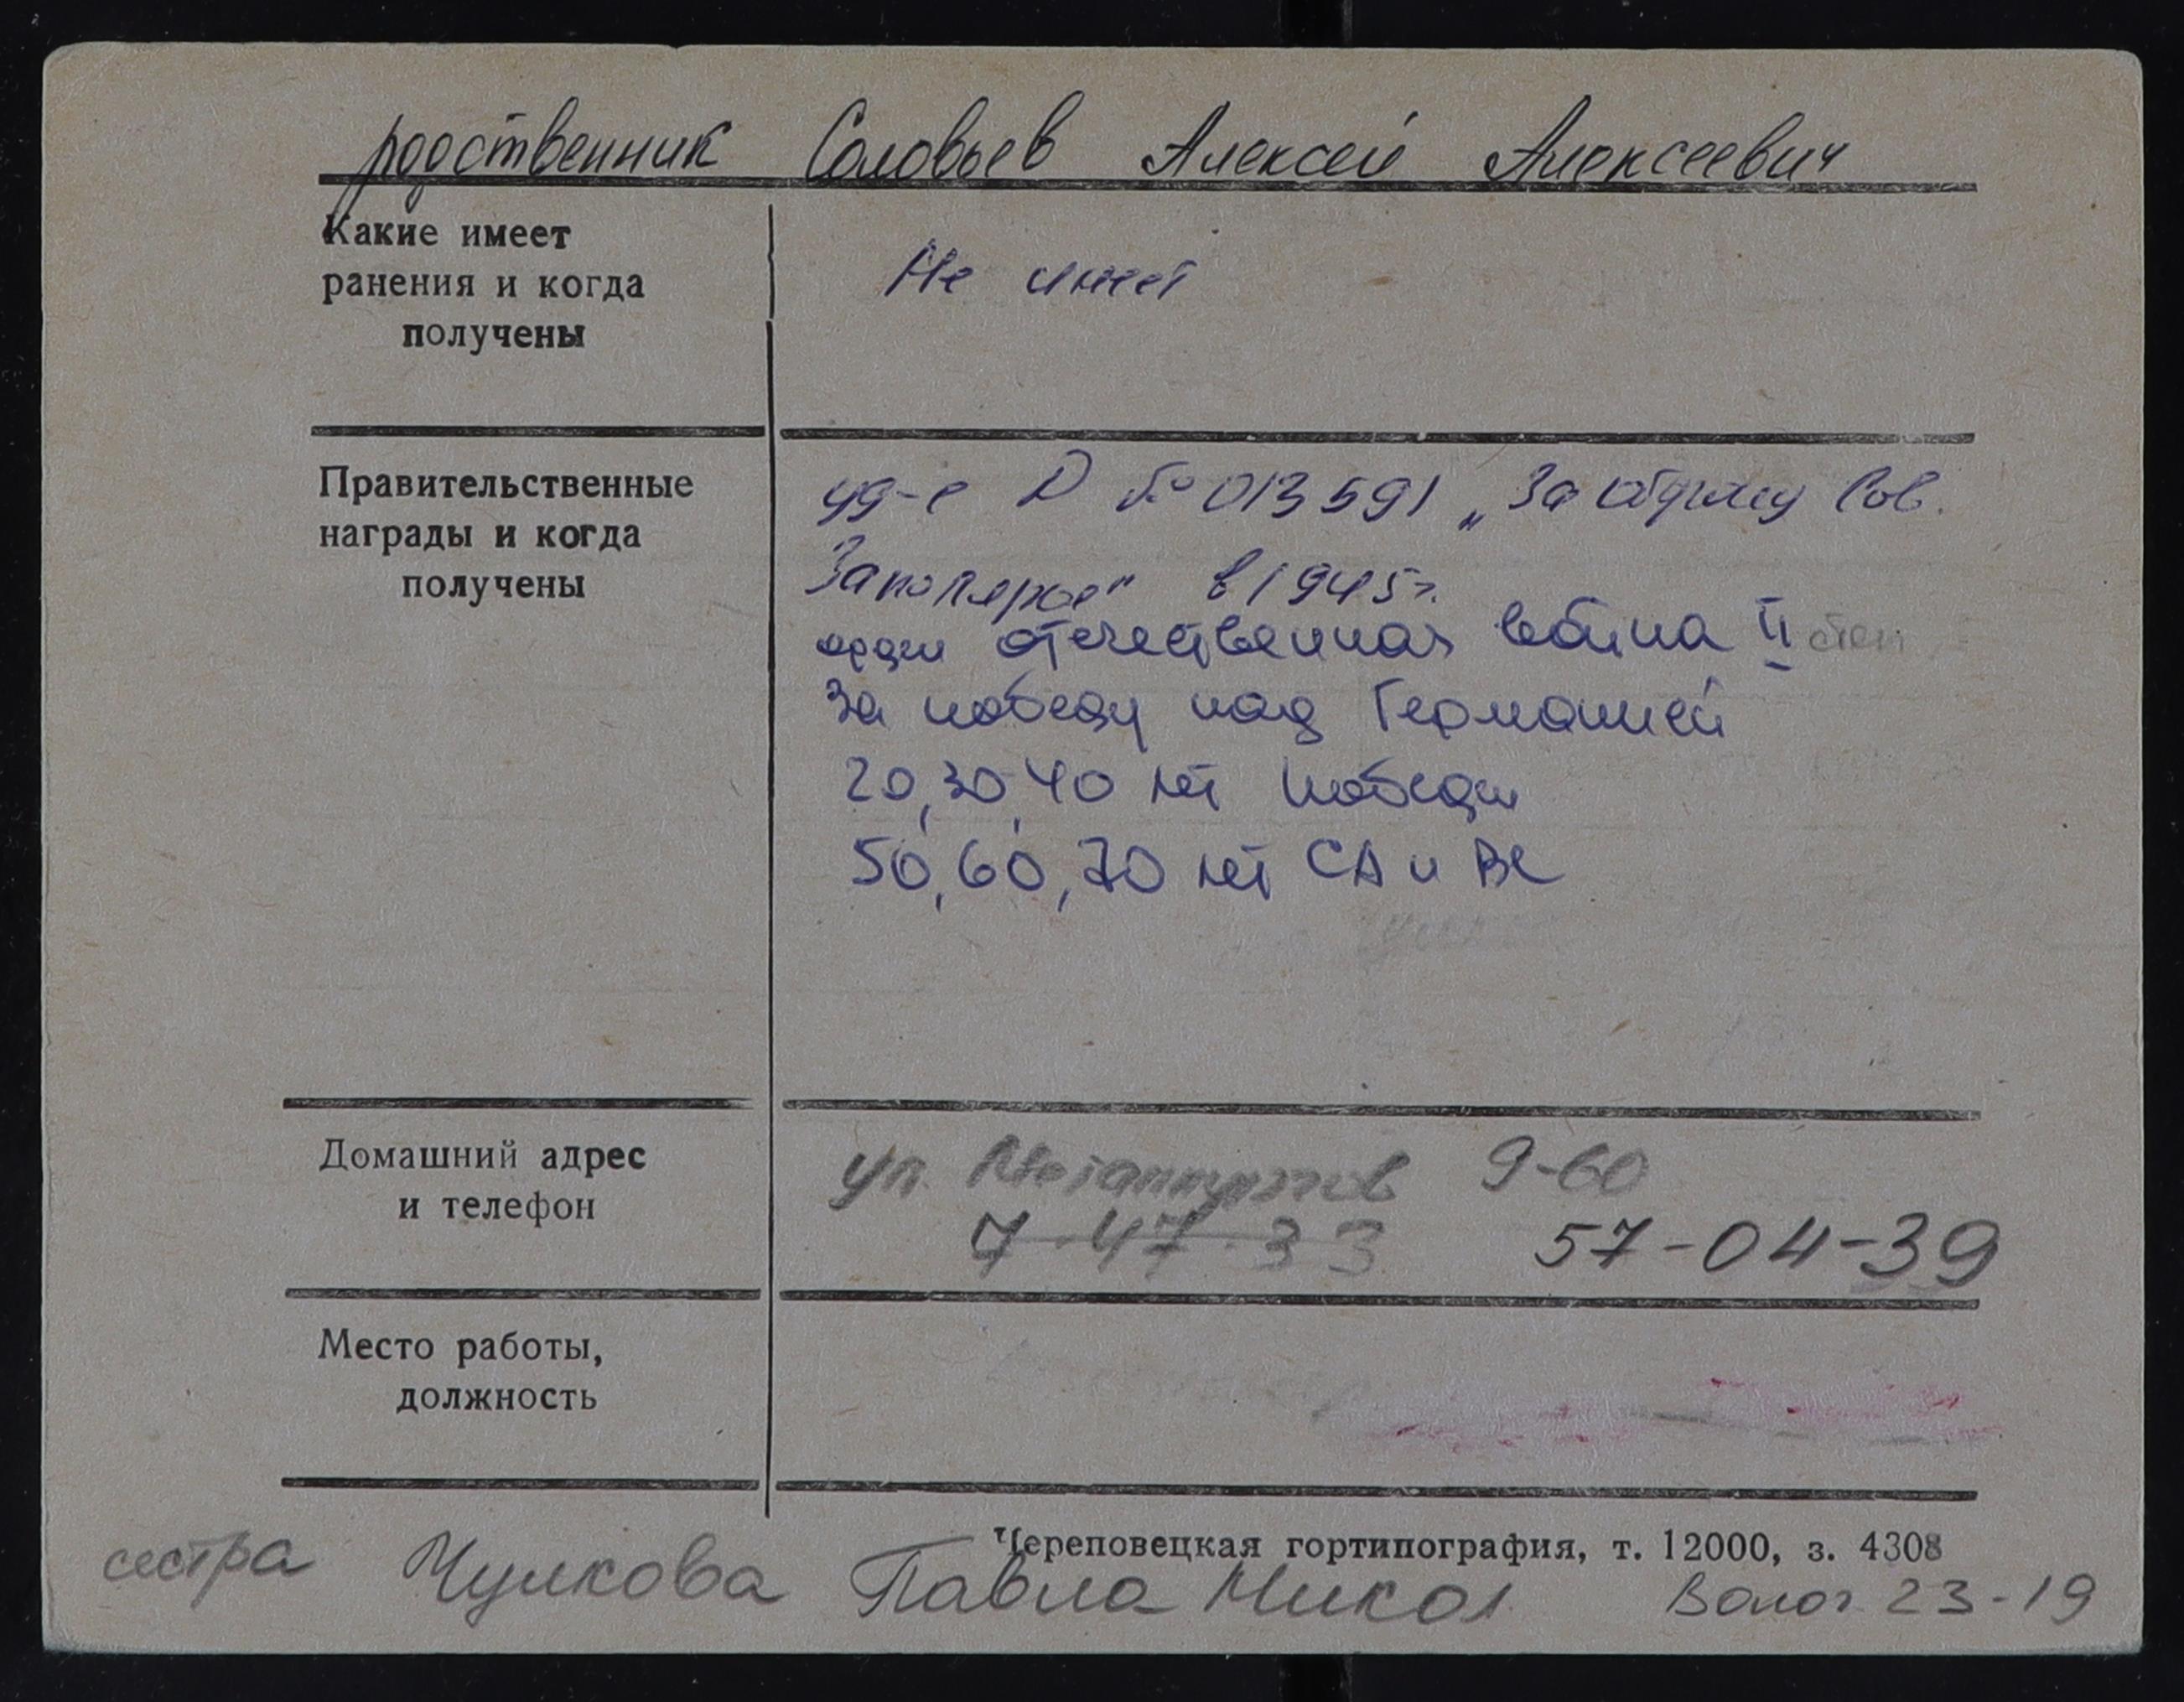 родственник Соловьев Алексей Алексеевич
Какие имеет
ранения и когда
получены
Не имеет
Правительственные
награды и когда
получены
уд-е D № 013591 „За оборону Сов.
Заполярье" в 1945г.
орден отечественная война II степ
За победу над Германией
20, 30, 40 лет победы
50, 60, 70 лет СА и ВС
Домашний адрес
и телефон
ул. Металлургов 9-60
7-47-33 57-04-39
Место работы,
должность
Череповецкая гортипография, т. 12000, з. 4308
сестра Чулкова Павла Никол Волог 23-19